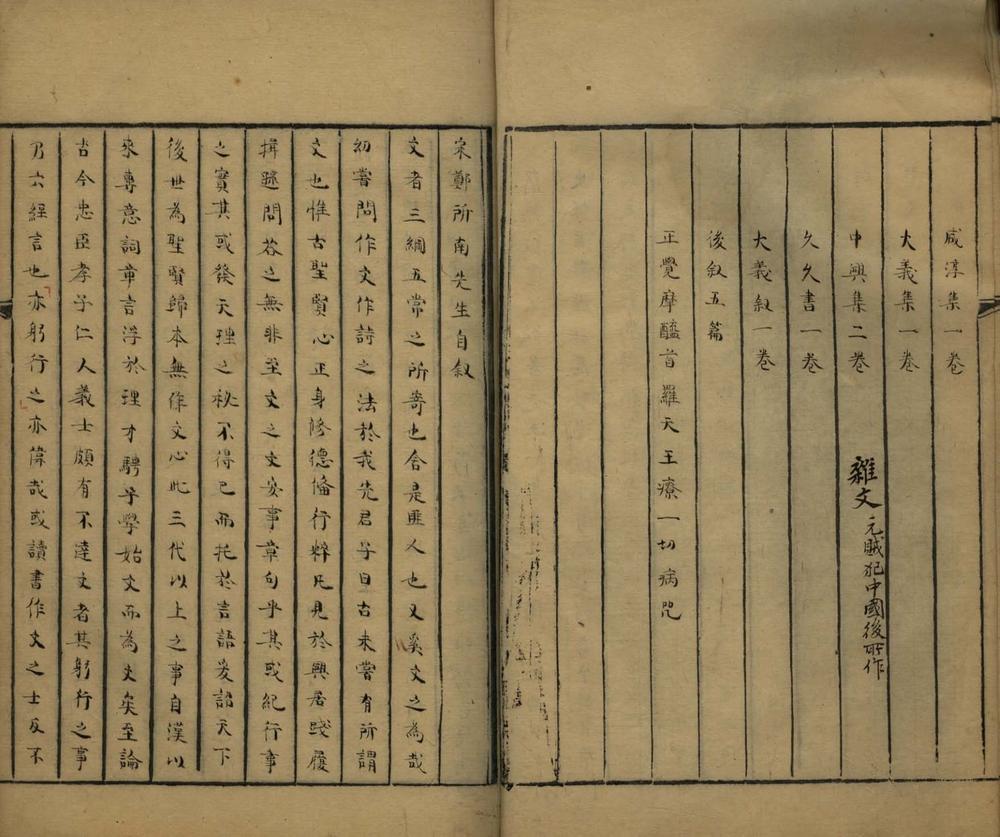 咸淳集一卷
大義集一卷
中興集二卷
雜文元賊犯中國後所作
久久書一卷
大義叙一卷
後叙五篇
正覺摩醯首羅天王療一切病咒
宋鄭所南先生自叙
文者三綱五常之所寄也舍是匪人也又奚文之為哉
初嘗問作文作詩之法於我先君子曰古未嘗有所謂
文也惟古聖賢心正身修德備行粹凡見於興居踐履
揖遜問荅之無非至文之文安事章句乎其或紀行事
之實其或發天理之秘不得已而托於言語爰詔天下
後世為聖賢歸本無作文心此三代以上之事自漢以
來專意詞章言浮於理才騁乎學始文而為文矣至論
古今忠臣孝子仁人義士頗有不達文者其躬行之事
乃六經言也亦躬行之亦偉哉或讀書作文之士反不